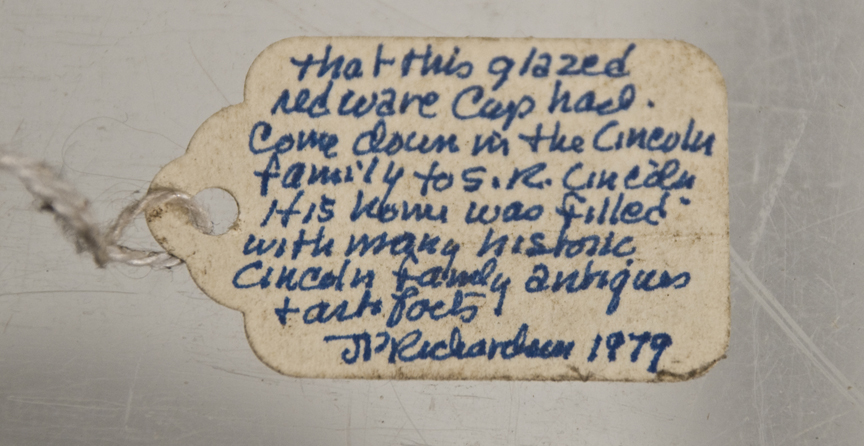 that this glazed
redware Cup had.
Come down in the Lincoln
family to S. R. Lincoln
His home was filled
with many historic
Lincoln family antiques
+ artifacts
JP Richardson 1979